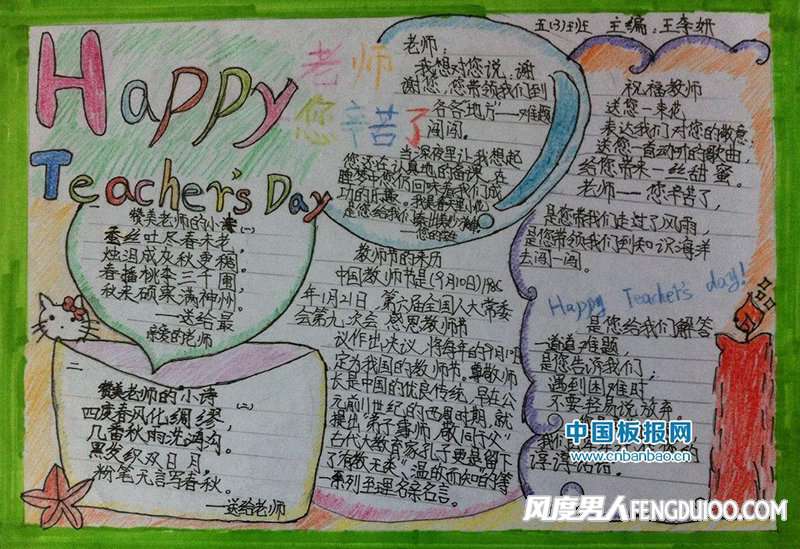 五(3)班 主编:王李妍
Happy
Teacher's Day
老师
您辛苦了
老师:
我想对您说:谢
谢您,您带领我们到
各各地方"——难题
闯闯。
当深夜里让我想起
您还在认真地备课,在
睡梦中您仍回味着我们成
功的乐趣。
是您给我们
——您的学生
赞美老师的小诗(一)
蚕丝吐尽春未老,
烛泪成灰秋更稠。
春播桃李三千圃,
秋来硕果满神州。
——送给最
亲爱的老师
二
赞美老师的小诗
(二)
四度春风化绸缪,
几番秋雨洗鸿沟。
黑发积霜日月,
粉笔无言写春秋。
——送给老师
教师节的来历
中国教师节是(9月10日)1985
年1月21日,第六届全国人大常委
会第九次会
教师节
议作出决议,将每年的9月10日
定为我国的教师节。尊敬师
长是中国的优良传统,早在公
元前11世纪的西周时期,就
提出"弟子事师,敬同于父"
古代大教育家孔子更是留下
了"有教无类""温的而知的"等
一系列至理名录名言。
祝福教师
送您一束花
表达我们对您的敬意;
送您一首动听的歌曲,
给您带来一丝甜蜜。
老师——您辛苦了,
是您带我们走过了风雨,
是您带领我们到知识海洋
去闯一闯。
Happy Teacher's day!
是您给我们解答
一道道难题,
是您告诉我们,
遇到困难时
不要轻易说放弃。
我们
谆谆话语。
中国板报网
www.cnbanbao.cn
风度男人FENGDU100.COM